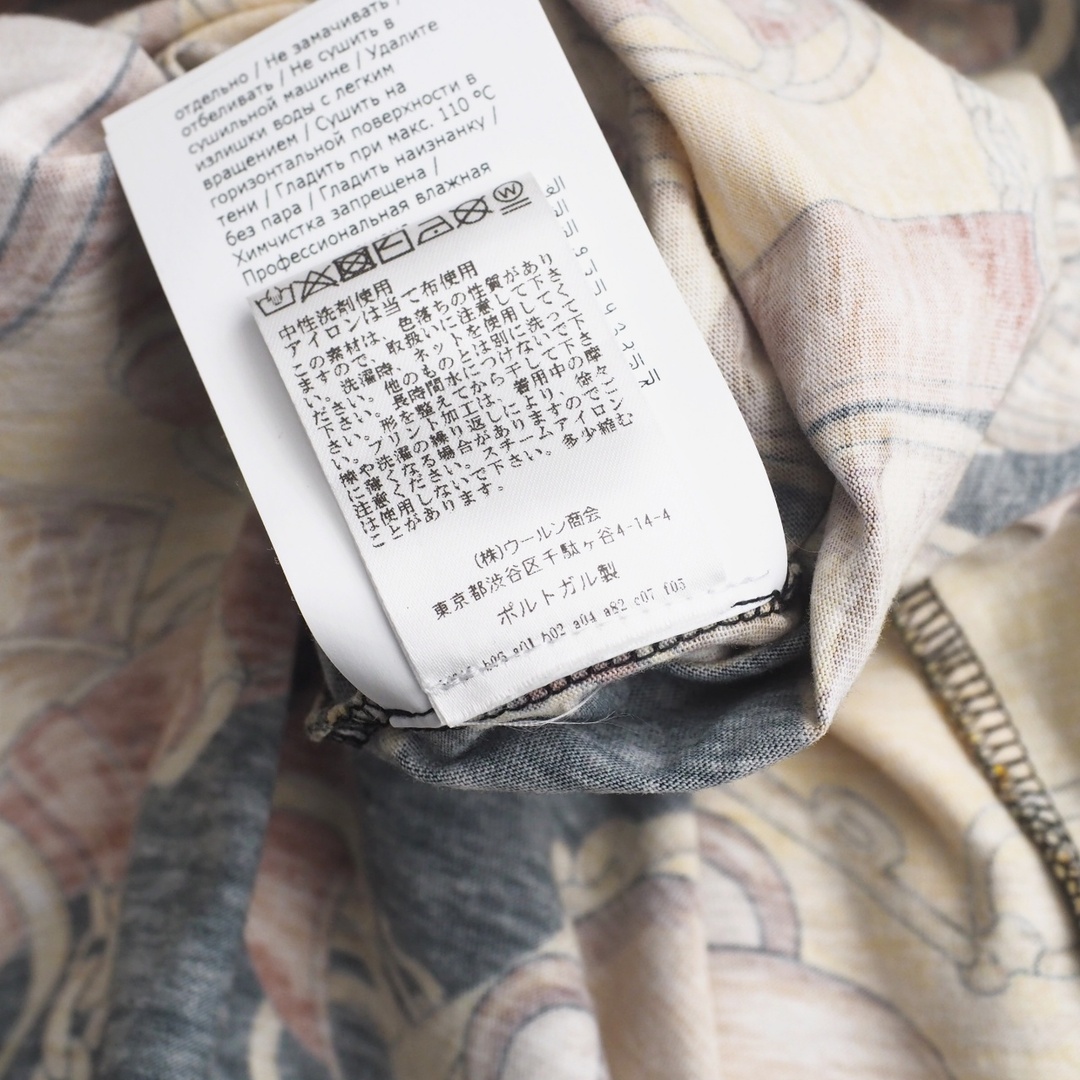 отдельно / Не замачивать /
отбеливать / Не сушить в
сушильной машине / Удалите
излишки воды с легким
вращением / Сушить на
горизонтальной поверхности в
тени / Гладить при макс. 110 ºC
без пара / Гладить наизнанку /
Химчистка запрещена /
Профессиональная влажная
中性洗剤使用
アイロンは当て布使用
この素材は、色落ちの性質があり
ますので、取扱いに注意して下さ
い。洗濯時、ネットを使用して く
ださい。他のものとは別に洗って
下さい。長時間水につけないで下
さい。形を整えてから干して下さ
い。プリント加工は、着用中の摩
擦や洗濯の繰り返しにより、徐々
に薄くなる場合がありますのでご
注意ください。スチームアイロン
は使用しないで下さい。多少縮む
ことがあります。
(株)ウールン商会
東京都渋谷区千駄ヶ谷4-14-4
ポルトガル製
b06 a01 h02 a04 a82 c07 f05